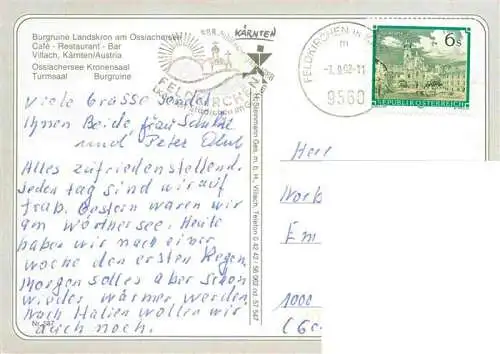 Burgruine Landskron am Ossiachersee
Café - Restaurant - Bar
Villach, Kärnten/Austria
Ossiachersee Kronensaal
Turmsaal Burgruine
KÄRNTEN
FELDKIRCHEN
FELDKIRCHEN IN
9560
6 s
REPUBLIK ÖSTERREICH
Viele Grüsse sendet
Ihnen Beide, frau
und Peter
Alles zufriedenstellend.
Jeden tag sind wir auf
trab. Gestern waren wir
am Wörtnersee. Heute
haben wir nach einer
woche den ersten Regen,
Morgen solles aber schon
wieder wärmer werden.
Nach Italien wollen wir
auch noch.
Nr. 587
Ges. m. b. H., Villach, Telefon 0 42 42 /
Herr
1000